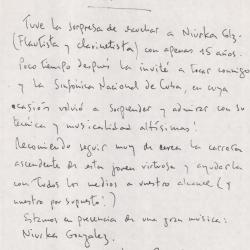 Tuve la sorpresa de escuchar a Niurka Glz.
(Flautista y clarinetista) con apenas 15 años.
Poco tiempo después la invité a tocar conmigo
y la Sinfónica Nacional de Cuba, en cuya
ocasión volvió a sorprender y admirar con su
técnica y musicalidad altísimas!
Recomiendo seguir muy de cerca la carrera
ascendente de esta joven virtuosa y ayudarla
con todos los medios a nuestro alcance (y
nuestro por supuesto!)
Estamos en presencia de una gran música:
Niurka González.